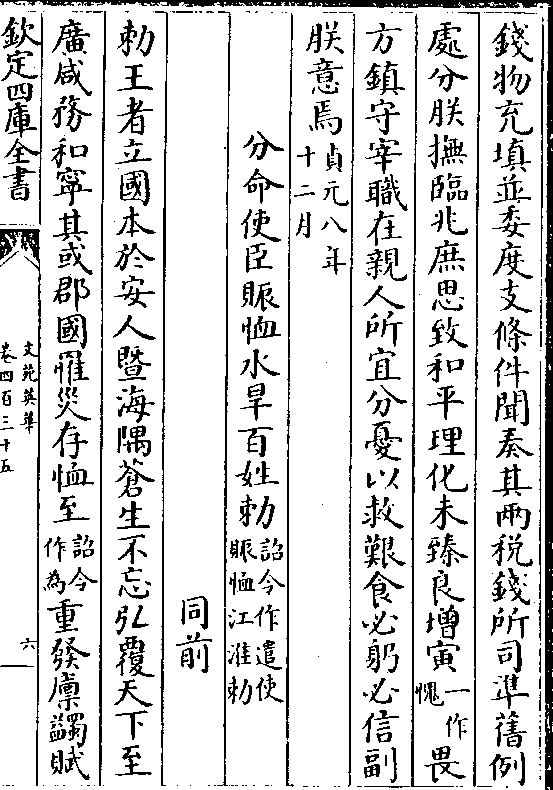 錢物充填並委度支條件聞奏其兩税錢所司準舊例
處分朕撫臨兆庶思致和平理化未臻良增寅一作愧畏
方鎮守宰職在親人所宜分憂以救艱食必躬必信副
朕意焉貞元八年十二月
分命使臣賑恤水旱百姓勅詔令作遣使賑恤江淮勅
同前
勅王者立國本於安人暨海隅蒼生不忘弘覆天下至
廣咸務和寧其或郡國罹災存恤至詔令作為重發廪蠲賦
欽定四庫全書
文苑英華
卷四百三十五
六